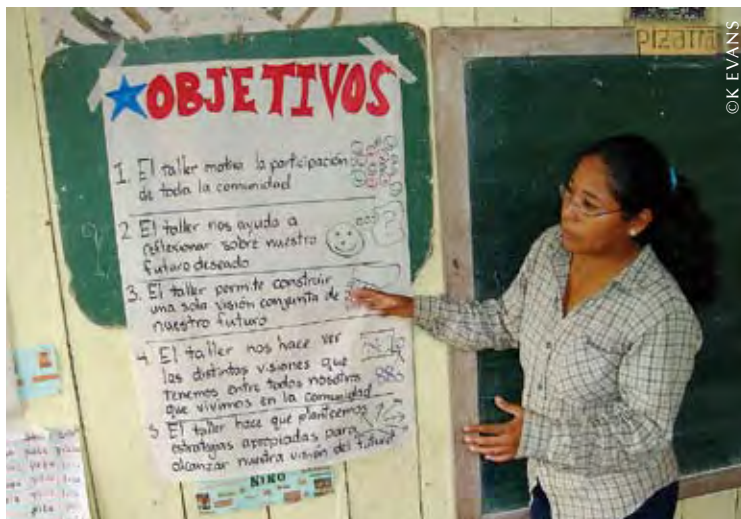 OBJETIVOS
1. El taller motiva la participación
de toda la comunidad
2 El taller nos ayuda a
reflexionar sobre nuestro
futuro deseado
3. El taller permite construir
una sola visión conjunta de
nuestro futuro
4 El taller nos hace ver
las distintas visiones que
tenemos entre todos nosotros
que vivimos en la comunidad
5 El taller hace que planteemos
estrategias apropiadas para
alcanzar nuestra visión del futuro
Pizarra
©K EVANS
NIÑO